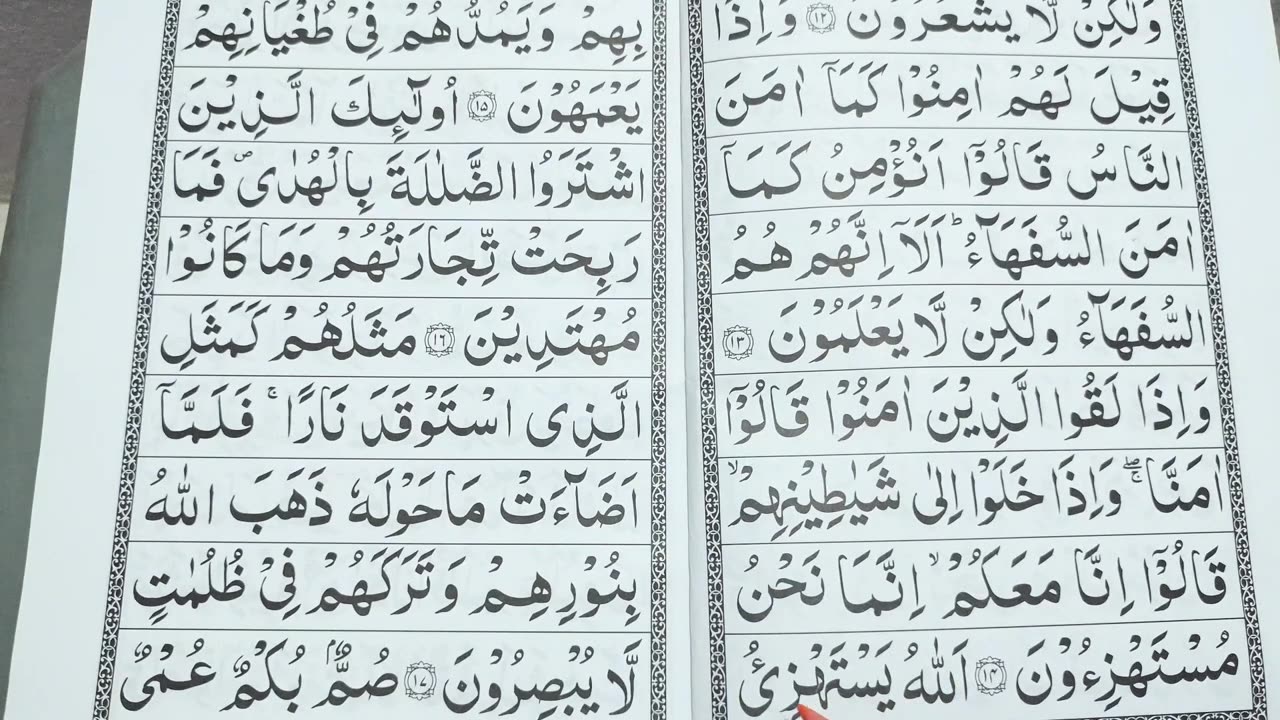 وَلٰكِنْ لَّا يَشْعُرُوْنَ ﴿۱۲﴾ وَاِذَا
قِيْلَ لَهُمْ اٰمِنُوْا كَمَاۤ اٰمَنَ
النَّاسُ قَالُوْۤا اَنُؤْمِنُ كَمَاۤ
اٰمَنَ السُّفَهَآءُ ؕ اَلَاۤ اِنَّهُمْ هُمُ
السُّفَهَآءُ وَلٰكِنْ لَّا يَعْلَمُوْنَ ﴿۱۳﴾
وَاِذَا لَقُوا الَّذِيْنَ اٰمَنُوْا قَالُوْۤا
اٰمَنَّا ۖۚ وَاِذَا خَلَوْا اِلٰى شَيٰطِيْنِهِمْ ۙ
قَالُوْۤا اِنَّا مَعَكُمْ ۙ اِنَّمَا نَحْنُ
مُسْتَهْزِءُوْنَ ﴿۱۴﴾ اَللّٰهُ يَسْتَهْزِئُ
بِهِمْ وَيَمُدُّهُمْ فِىْ طُغْيَانِهِمْ
يَعْمَهُوْنَ ﴿۱۵﴾ اُولٰٓئِكَ الَّذِيْنَ
اشْتَرَوُا الضَّلٰلَةَ بِالْهُدٰى ۪ فَمَا
رَبِحَتْ تِّجَارَتُهُمْ وَمَا كَانُوْا
مُهْتَدِيْنَ ﴿۱۶﴾ مَثَلُهُمْ كَمَثَلِ
الَّذِى اسْتَوْقَدَ نَارًا ۚ فَلَمَّاۤ
اَضَآءَتْ مَا حَوْلَهٗ ذَهَبَ اللّٰهُ
بِنُوْرِهِمْ وَتَرَكَهُمْ فِىْ ظُلُمٰتٍ
لَّا يُبْصِرُوْنَ ﴿۱۷﴾ صُمٌّۢ بُكْمٌ عُمْىٌ